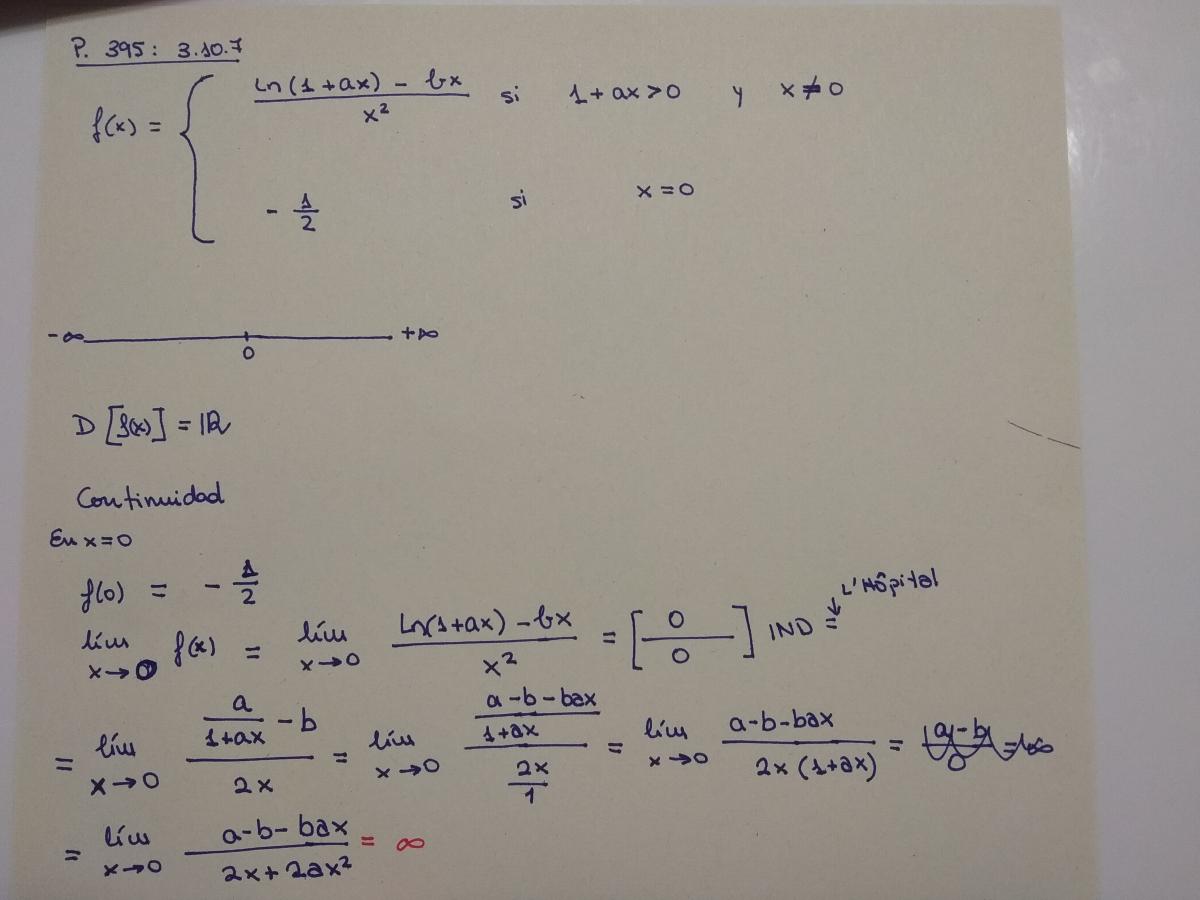 P. 395: 3.10.7
f(x) = { (Ln(1+ax) - bx)/x² si 1+ax>0 y x≠0
- 1/2 si x=0
-∞ 0 +∞
D [f(x)] = ℝ
Continuidad
En x=0
f(0) = - 1/2
L'Hôpital
lím x→0 f(x) = lím x→0 (Ln(1+ax) - bx)/x² = [0/0] IND =
= lím x→0 (a/(1+ax) - b)/(2x) = lím x→0 ((a-b-bax)/(1+ax))/(2x/1) = lím x→0 (a-b-bax)/(2x(1+ax)) =
= lím x→0 (a-b-bax)/(2x+2ax²) = ∞